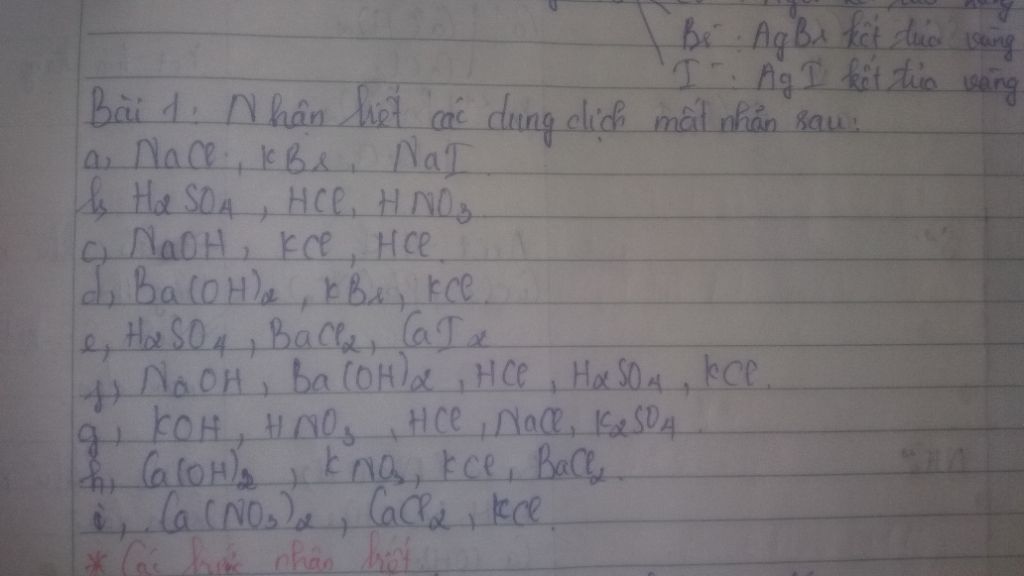 Br⁻: AgBr kết tủa vàng
I⁻: AgI kết tủa vàng
Bài 1: Nhận biết các dung dịch mất nhãn sau:
a, NaCl, KBr, NaI
b, H2SO4, HCl, HNO3
c, NaOH, KCl, HCl.
d, Ba(OH)2, KBr, KCl
e, H2SO4, BaCl2, CaI2
f, NaOH, Ba(OH)2, HCl, H2SO4, KCl.
g, KOH, HNO3, HCl, NaCl, K2SO4.
h, Ca(OH)2, KNO3, KCl, BaCl2.
i, Ca(NO3)2, CaCl2, KCl.
* Các bước nhận biết